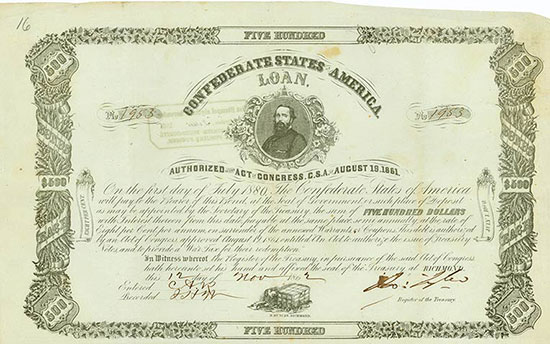 16
FIVE HUNDRED
500 500
CONFEDERATE STATES OF AMERICA
LOAN.
No. 1953 No. 1953
AUTHORIZED BY ACT OF CONGRESS, C.S.A. OF AUGUST 19, 1861.
$500 $500
EIGHT PER CENT
On the first day of July 1880, The Confederate States of America
will pay to the Bearer of this Bond, at the seat of Government or such place of Deposit
as may be appointed by the Secretary of the Treasury, the sum of FIVE HUNDRED DOLLARS
with Interest thereon from
Eight per Cent per annum, on surrender of the annexed Warrants or Coupons. This Bond is authorized
by an Act of Congress approved August 19, 1861, entitled An Act to authorize the issue of Treasury
Notes, and to provide a War Tax for their redemption.
In Witness whereof the Register of the Treasury, in pursuance of the said Act of Congress
hath hereunto set his hand and affixed the seal of the Treasury at RICHMOND,
this 12 day of Nov
Entered
Recorded
Register of the Treasury.
500 500
FIVE HUNDRED